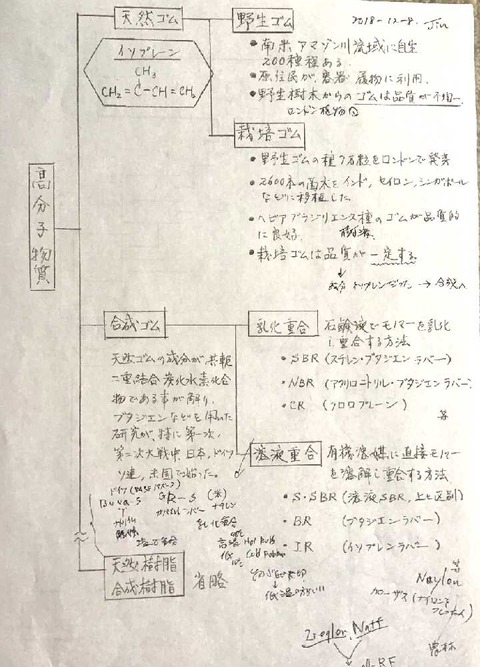 天然ゴム
野生ゴム
2018-12-8. Jin
イソプレン
CH3
CH2=C-CH=CH2
・南米アマゾン川流域に自生
200種程ある.
・原住民が容器 履物に利用.
・野生樹木からのゴムは品質が不均一.
ロンドン植物園
栽培ゴム
・野生ゴムの種7万粒をロンドンで発芽
・2600本の苗木をインド,セイロン,シンガポール
などに移植した
・ヘビアブラジリエンス種のゴムが品質的
に良好.
・栽培ゴムは品質が一定する
高分子物質
合成ゴム
天然ゴムの成分が共軛
二重結合炭化水素化合
物である事が解り,
ブタジエンなどを用いた
研究が,特に第一次,
第二次大戦中 日本,ドイツ
ソ連,米国で始った.
乳化重合
石鹸液でモノマーを乳化
し重合する方法
・SBR (スチレン・ブタジエンラバー)
・NBR (アクリロニトリル・ブタジエンラバー)
・CR (クロロプレーン)
等
溶液重合
有機溶媒に直接モノマー
を溶解し重合する方法
・S・SBR (溶液SBR,上と区別)
・BR (ブタジエンラバー)
・IR (イソプレンラバー)
等
ドイツ
Buna-S
GR-S (米)
乳化重合
高温 Hot Rubb
低
低温の方がいい
天然樹脂
合成樹脂
省略
Naylon
Zieglor. Natt